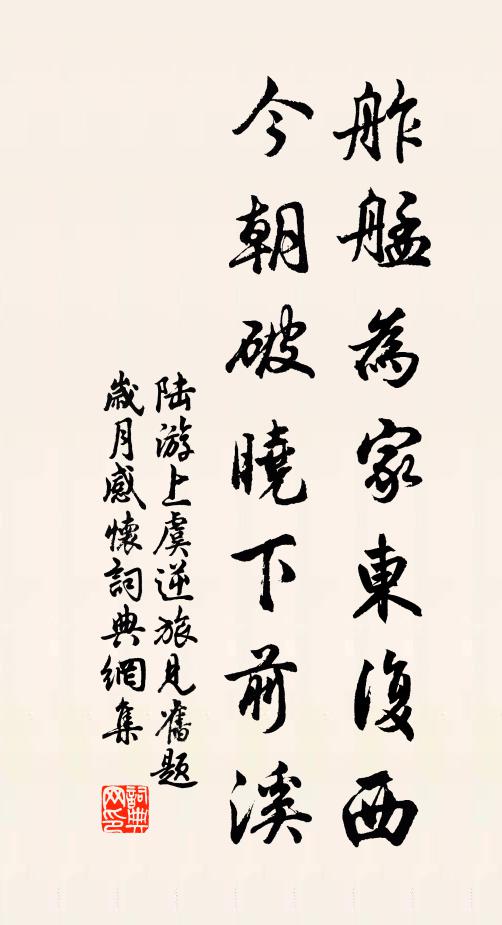 舴艋為家東復西
今朝破曉下前溪
陸游上虞逆旅見舊題
歲月感懷詞典網集
詞典网印